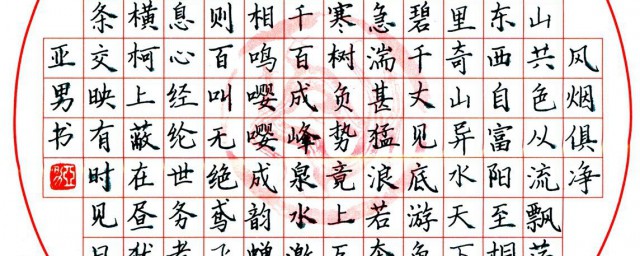 风烟俱净
山共色从流飘荡
东西自富阳至桐
里奇山异水天下
碧千丈见底游鱼
急湍甚猛浪若奔
寒树负势竞上互
千百成峰泉水激
相鸣嘤嘤成韵蝉
则百叫无绝鸢飞
息心经纶世务者
横柯上蔽在昼犹
条交映有时见日
亚男书